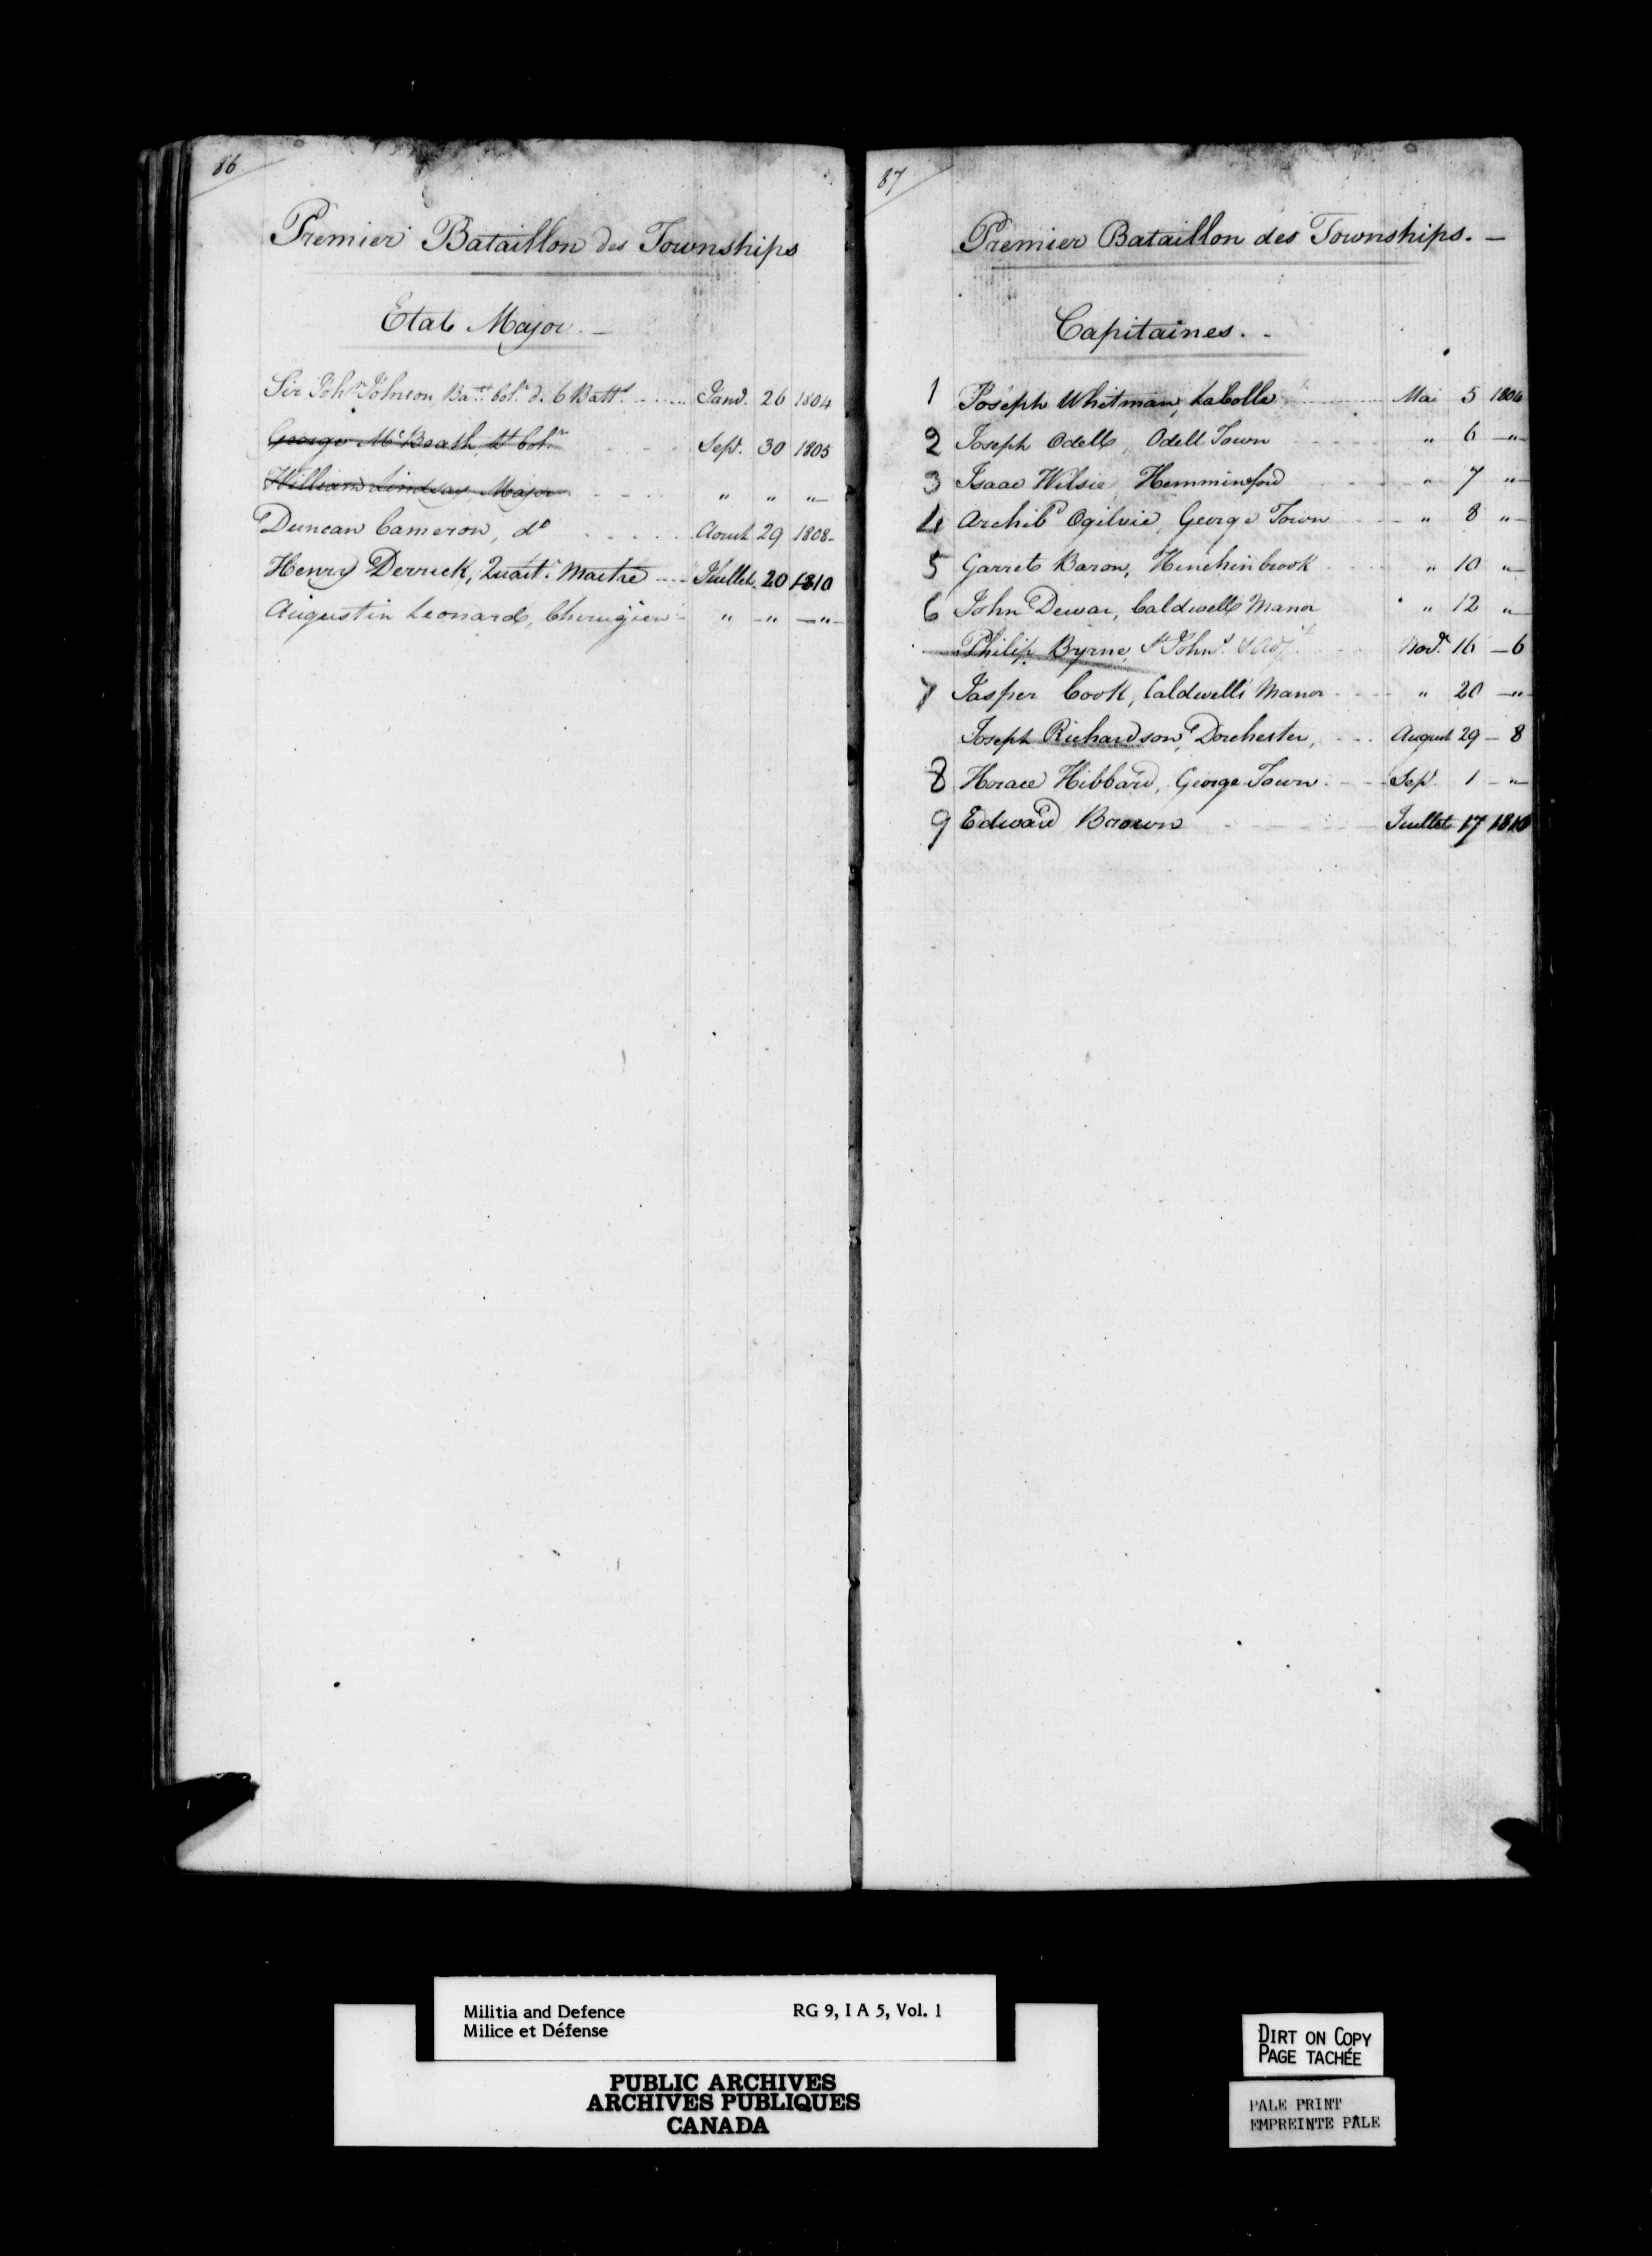 86
Premier Bataillon des Townships
Etat Major. —
Sir Johⁿ Johnson, Baᵗᵗ Colˡ d. 6 Battˢ. Janv. 26 1804
George McBeath, Lt Colˡ Sepᵗ. 30 1805
William Lindsay, Major " " "
Duncan Cameron, dᵒ Aoust 29 1808-
Henry Derrick, Quartʳ. Maitre Juillet 20 1810
Augustin Leonard, Chirugien " " "
87
Premier Bataillon des Townships. —
Capitaines. -
1 Joseph Whitman, LaColle Mai 5 1804
2 Joseph Odell, Odell Town " 6 "
3 Isaac Wilsie Hemminford " 7 "
4 Archibᵈ Ogilvie, George Town " 8 "
5 Garret Baron, Hinchinbrook " 10 "
6 John Dewar, Caldwells Manor " 12 "
Philip Byrne, Sᵗ Johnˢ. & Adjᵗ Novʳ. 16 — 6
7 Jasper Cook, Caldwells Manor " 20 "
Joseph Richardson, Dorchester, August 29 — 8
8 Horace Hibbard, George Town Sepᵗ. 1 "
9 Edward Brown Juillet 17 1810
Militia and Defence RG 9, I A 5, Vol. 1
Milice et Défense
PUBLIC ARCHIVES
ARCHIVES PUBLIQUES
CANADA
DIRT ON COPY
PAGE TACHÉE
PALE PRINT
EMPREINTE PÂLE